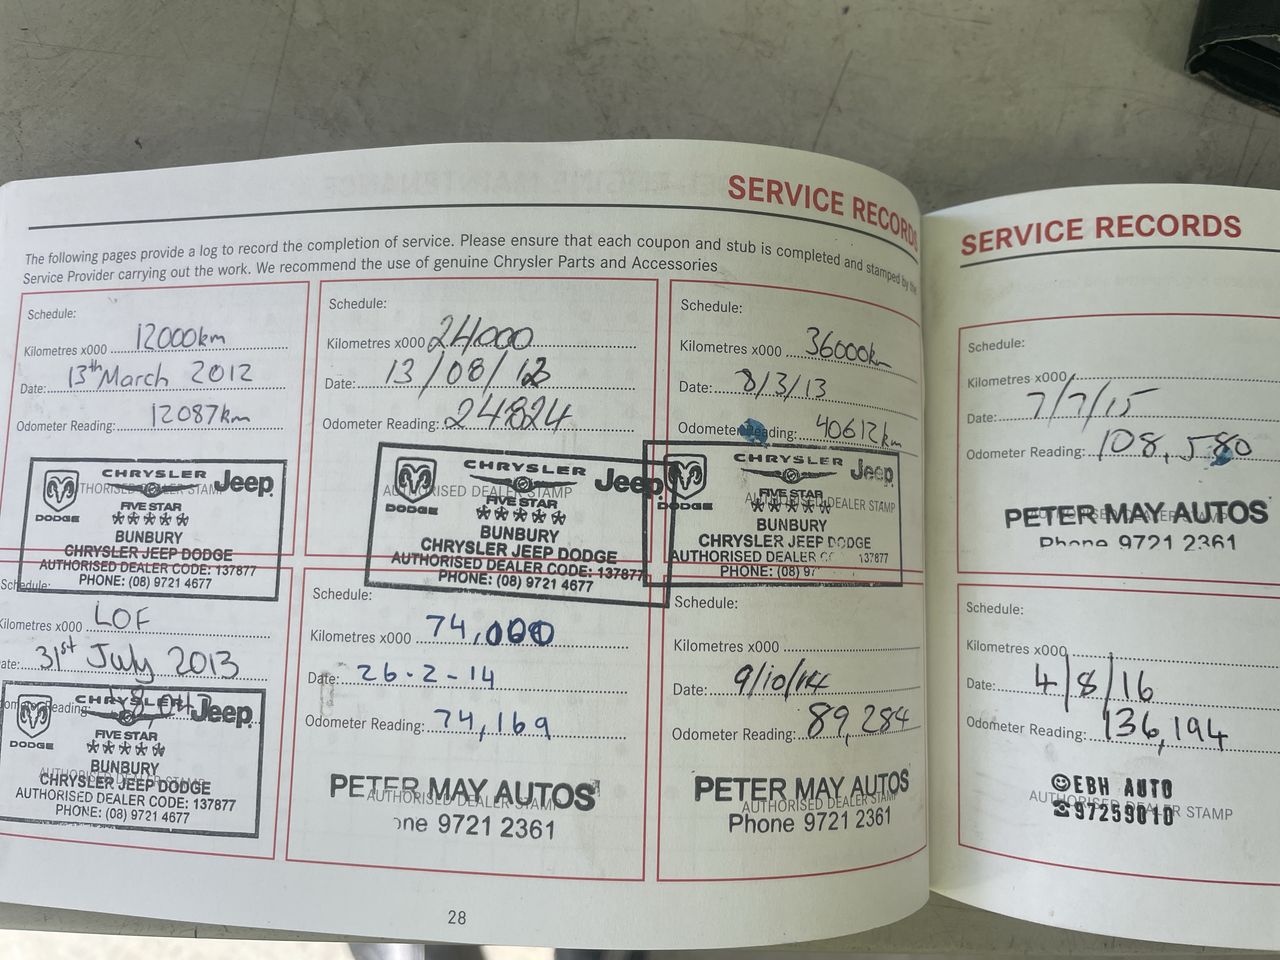 SERVICE RECORDS
The following pages provide a log to record the completion of service. Please ensure that each coupon and stub is completed and stamped by the
Service Provider carrying out the work. We recommend the use of genuine Chrysler Parts and Accessories
Schedule:
Kilometres x000 12000km
Date: 13th March 2012
Odometer Reading: 12087km
AUTHORISED DEALER STAMP
DODGE
CHRYSLER
Jeep
FIVE STAR
BUNBURY
CHRYSLER JEEP DODGE
AUTHORISED DEALER CODE: 137877
PHONE: (08) 9721 4677
Schedule:
Kilometres x000 24000
Date: 13/08/12
Odometer Reading: 24824
AUTHORISED DEALER STAMP
DODGE
CHRYSLER
Jeep
FIVE STAR
BUNBURY
CHRYSLER JEEP DODGE
AUTHORISED DEALER CODE: 137877
PHONE: (08) 9721 4677
Schedule:
Kilometres x000 36000km
Date: 8/3/13
Odometer Reading: 40612km
AUTHORISED DEALER STAMP
DODGE
CHRYSLER
Jeep
FIVE STAR
BUNBURY
CHRYSLER JEEP DODGE
AUTHORISED DEALER 137877
PHONE: (08) 97
Schedule:
Kilometres x000 LOF
Date: 31st July 2013
Reading:
AUTHORISED DEALER STAMP
DODGE
CHRYSLER
Jeep
FIVE STAR
BUNBURY
CHRYSLER JEEP DODGE
AUTHORISED DEALER CODE: 137877
PHONE: (08) 9721 4677
Schedule:
Kilometres x000 74,000
Date: 26-2-14
Odometer Reading: 74,169
PETER MAY AUTOS
AUTHORISED DEALER STAMP
one 9721 2361
Schedule:
Kilometres x000
Date: 9/10/14
Odometer Reading: 89,284
PETER MAY AUTOS
AUTHORISED DEALER STAMP
Phone 9721 2361
28
SERVICE RECORDS
Schedule:
Kilometres x000
Date: 7/7/15
Odometer Reading: 108,580
PETER MAY AUTOS
AUTHORISED DEALER STAMP
Phone 9721 2361
Schedule:
Kilometres x000
Date: 4/8/16
Odometer Reading: 136,194
EBH AUTO
AUTHORISED DEALER STAMP
97259010